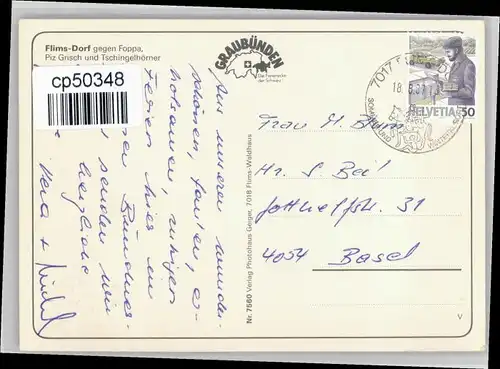 Flims-Dorf gegen Foppa,
Piz Grisch und Tschingelhörner
cp50348
GRAUBÜNDEN
Die Ferienecke
der Schweiz
7017 F
18.8.
HELVETIA 50
Aus unseren wunder-
schönen, faulen, er-
holsamen, ruhigen
Ferien hier in
Bündner-
senden wir
herzliche
Vera +
Nr. 7560 Verlag Photohaus Geiger, 7018 Flims-Waldhaus
Frau M. Blum
Hr. S. Beil
Gotthelfstr. 31
4054 Basel
V